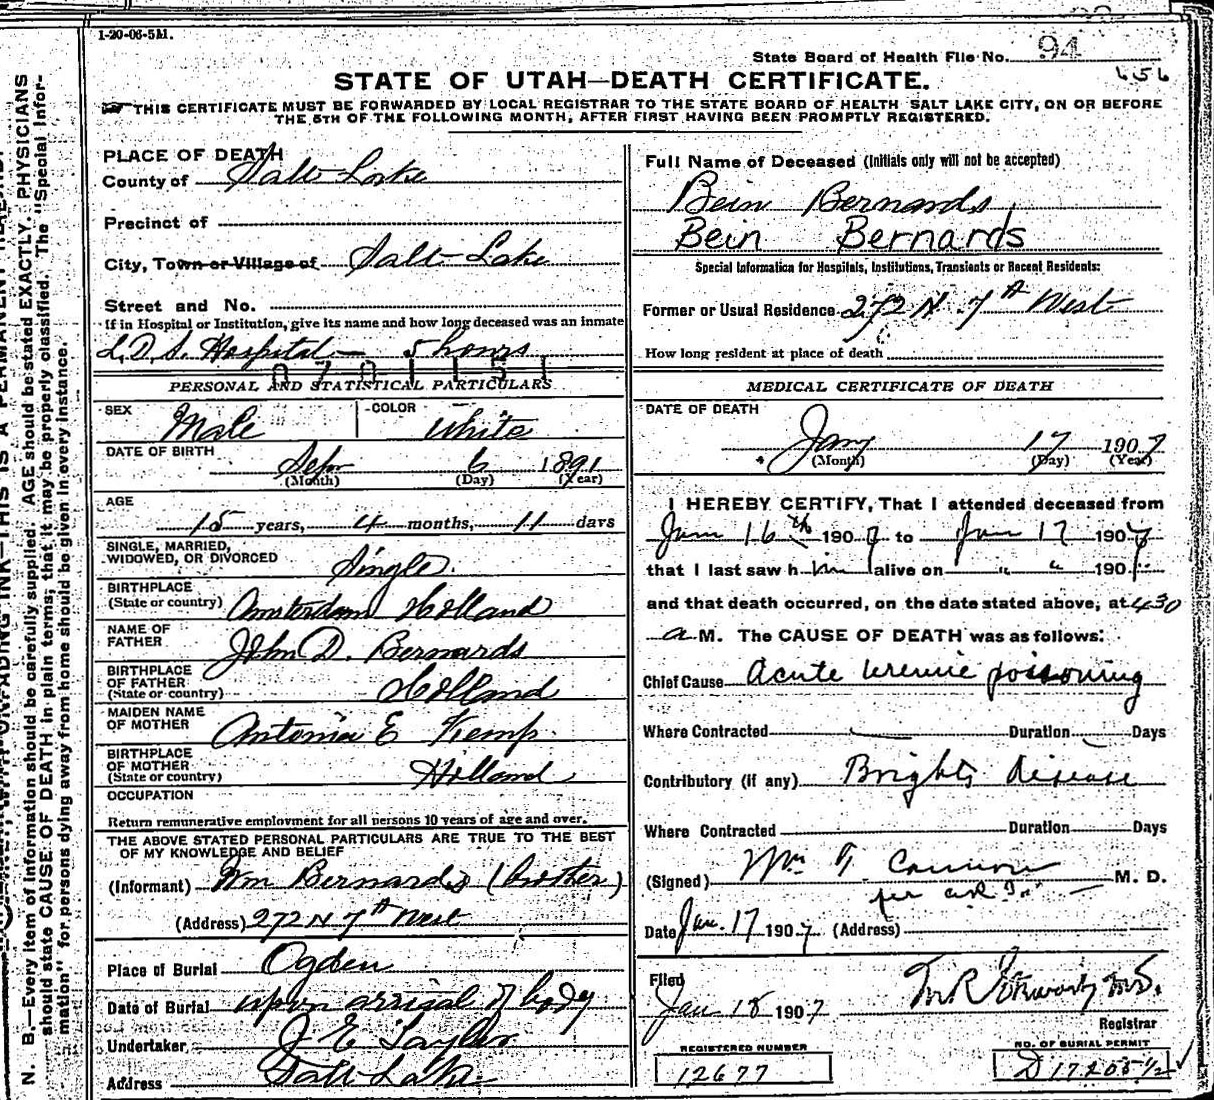 1-20-06-5M.
State Board of Health File No. 94
656
STATE OF UTAH—DEATH CERTIFICATE.
THIS CERTIFICATE MUST BE FORWARDED BY LOCAL REGISTRAR TO THE STATE BOARD OF HEALTH SALT LAKE CITY, ON OR BEFORE
THE 5TH OF THE FOLLOWING MONTH, AFTER FIRST HAVING BEEN PROMPTLY REGISTERED.
PLACE OF DEATH
County of Salt Lake
Precinct of
City, Town or Village of Salt Lake
Street and No.
If in Hospital or Institution, give its name and how long deceased was an inmate
L.D.S. Hospital — 5 hours
PERSONAL AND STATISTICAL PARTICULARS
SEX Male COLOR White
DATE OF BIRTH
Sep 6 1891
(Month) (Day) (Year)
AGE
15 years, 4 months, 11 days
SINGLE, MARRIED,
WIDOWED, OR DIVORCED Single.
BIRTHPLACE
(State or country) Amsterdam Holland
NAME OF
FATHER John D. Bernards
BIRTHPLACE
OF FATHER
(State or country) Holland
MAIDEN NAME
OF MOTHER Antonia E Kemp
BIRTHPLACE
OF MOTHER
(State or country) Holland
OCCUPATION
Return remunerative employment for all persons 10 years of age and over.
THE ABOVE STATED PERSONAL PARTICULARS ARE TRUE TO THE BEST
OF MY KNOWLEDGE AND BELIEF
(Informant) Wm Bernards (Brother)
(Address) 272 N 7th West
Place of Burial Ogden
Date of Burial upon arrival of body
Undertaker J E Taylor
Address Salt Lake
Full Name of Deceased (Initials only will not be accepted)
Bein Bernards
Bein Bernards
Special Information for Hospitals, Institutions, Transients or Recent Residents:
Former or Usual Residence 272 N 7th West
How long resident at place of death
MEDICAL CERTIFICATE OF DEATH
DATE OF DEATH
Jany 17 1907
(Month) (Day) (Year)
I HEREBY CERTIFY, That I attended deceased from
Jan 16th 1907 to Jan 17 1907
that I last saw him alive on " " 1907
and that death occurred, on the date stated above, at 430
a M. The CAUSE OF DEATH was as follows:
Chief Cause Acute Uremic poisoning
Where Contracted Duration Days
Contributory (if any) Brights disease
Where Contracted Duration Days
(Signed) Wm T Cannon M. D.
per
Date Jan. 17 1907 (Address)
Filed
Jan 18 1907
Registrar
REGISTERED NUMBER
12677
NO. OF BURIAL PERMIT
D 17205 1/2
N. B.—Every item of information should be carefully supplied. AGE should be stated EXACTLY. PHYSICIANS
should state CAUSE OF DEATH in plain terms, that it may be properly classified. The "Special Infor-
mation" for persons dying away from home should be given in every instance.